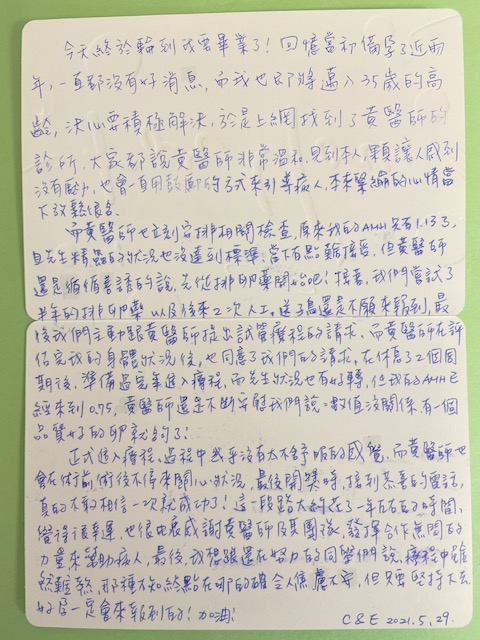 今天終於輪到我要畢業了！回憶當初備孕了近兩
年，一直都沒有好消息，而我也即將邁入35歲的高
齡，決心要積極解決，於是上網找到了黃醫師的
診所，大家都說黃醫師非常溫和，見到本人，果讓人感到
沒有壓力，也會一直用鼓勵的方式來引導病人，本來緊繃的心情當
下放鬆很多。
而黃醫師也立刻安排相關檢查，原來我的AMH只有1.13了，
且先生精蟲的狀況也沒達到標準，當下有點難接受，但黃醫師
還是循循善誘的說，先從排卵藥開始吧！接著，我們嘗試了
半年的排卵藥以及後來2次人工，送子鳥還是不願來報到，最
後我們主動跟黃醫師提出試管療程的請求，而黃醫師在評
估完我的身體狀況後，也同意了我們的請求。在休息2個週
期後，準備過完年進入療程，而先生狀況也有好轉，但我的AMH已
經來到0.75，黃醫師還是不斷安慰我們說：數值沒關係，有一個
品質好的卵就夠了！
正式進入療程，過程中幾乎沒有太不舒服的感覺，而黃醫師也
會在術前、術後不停來關心狀況，最後開獎時，接到恭喜的電話，
真的不敢相信一次就成功了！這一段路大約花了一年左右的時間，
覺得很幸運，也很由衷感謝黃醫師及其團隊，發揮合作無間的
力量來幫助病人，最後，我想跟還在努力的同學們說，療程中雖
然難熬，那種不知終點在哪的確令人焦慮不安，但只要堅持下去，
好孕一定會來報到的！加油！
C & E 2021.5.29.